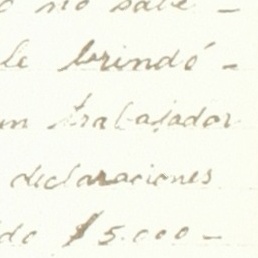 no sabe -
le brindó -
un trabajador
declaraciones
$5.000 -